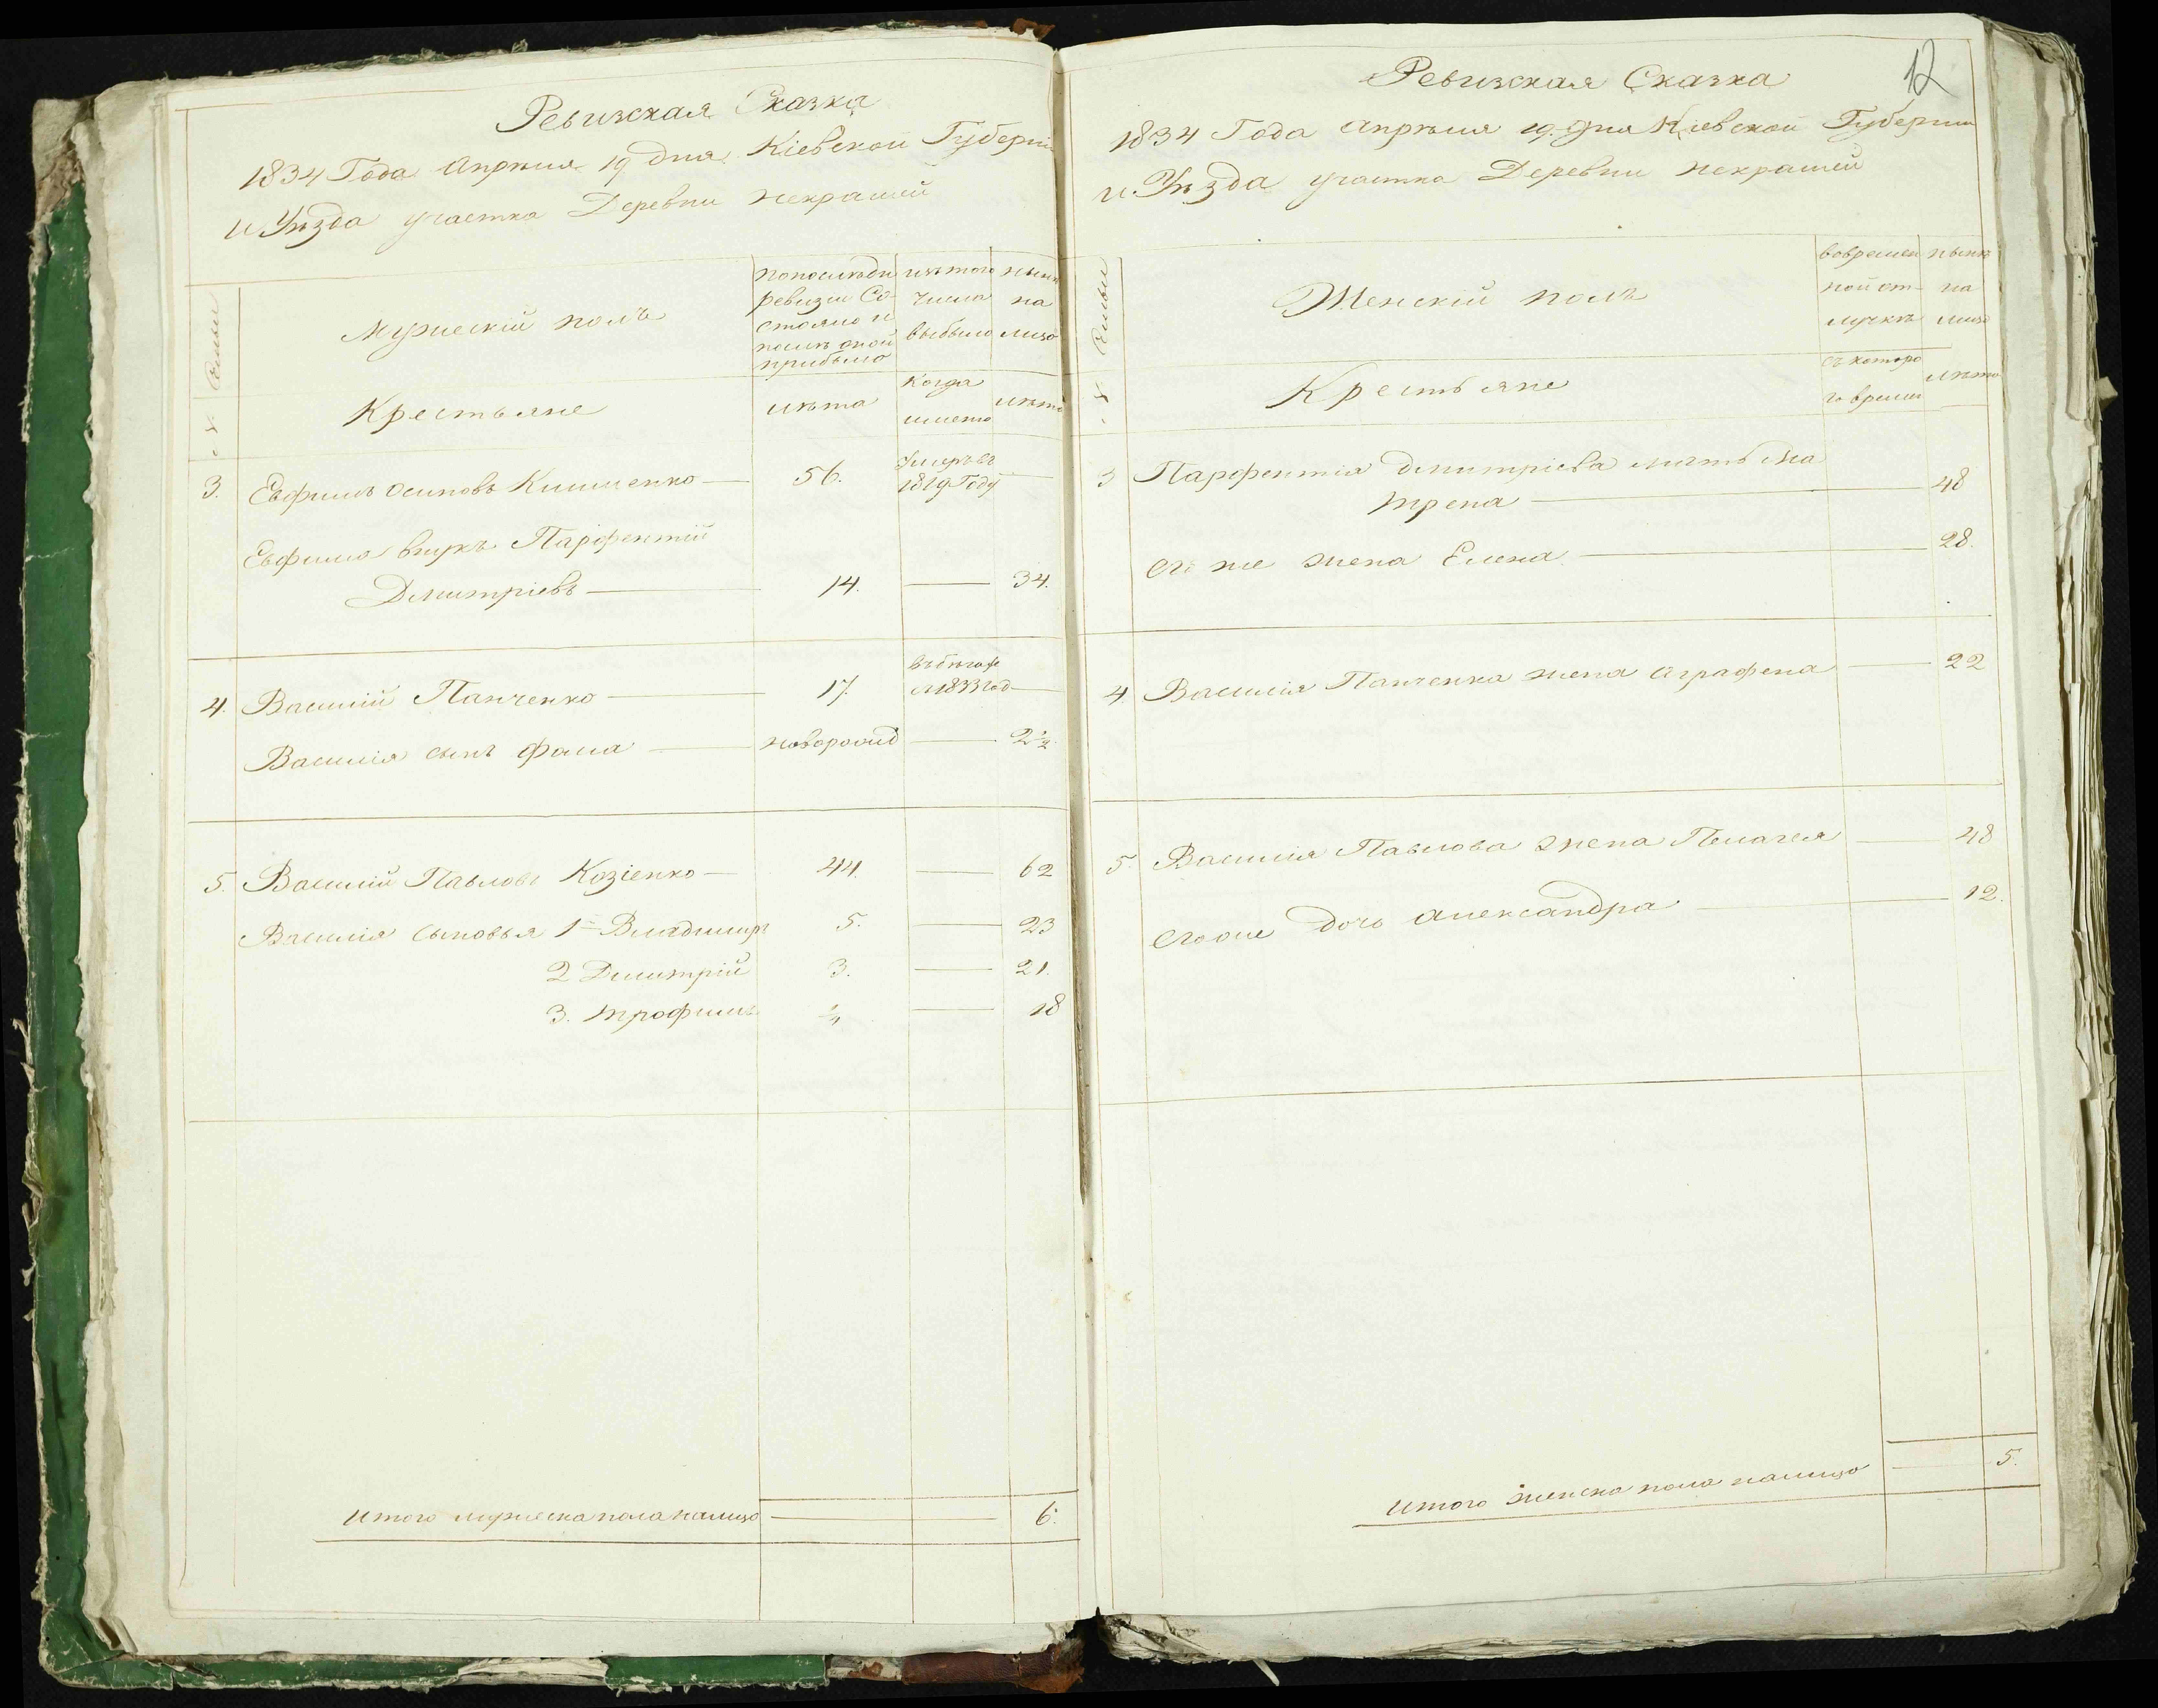 Ревизская Сказка
1834 Года Апреля 19 дня Кіевской Губерніи
и Уѣзда участка Деревни Некрашей
№ Семьи
Мужескій полъ
по последн
ревизіи Со-
стояло и
послѣ оной
прибыло
изъ того
числа
выбыло
нынѣ
на
лицо
Крестьяне
лѣта
Когда
именно
лѣта
3. Евфимъ Осиповъ Кишченко 56. умеръ въ 1819 Году
Евфима внукъ Парфентій
Дмитріевъ 14. 34.
4. Василій Панченко 17. въ бѣгахъ с 1833 год
Василія сынъ Фома новорожд 2 1/2
5. Василій Павловъ Козіенко 44. 62
Василія сыновья 1й Владимиръ 5. 23
2 Дмитрій 3. 21.
3. Трофимъ 1/4 18
Итого мужеска пола налицо 6.
12
Ревизская Сказка
1834 Года Апрѣля 19. дня Кіевской Губерніи
и Уѣзда участка Деревни Некрашей
№ Семьи
Женскій полъ
во времен
ной от-
лучкѣ
нынѣ
на
лицо
Крестьяне
съ которо
го время
лѣта
3 Парфентія Дмитріева мать Ма
трена 48
его же жена Елена 28.
4. Василія Панченка жена Аграфена 22
5. Василія Павлова жена Пелагея 48
его же дочь Александра 12.
Итого женска пола налицо 5.